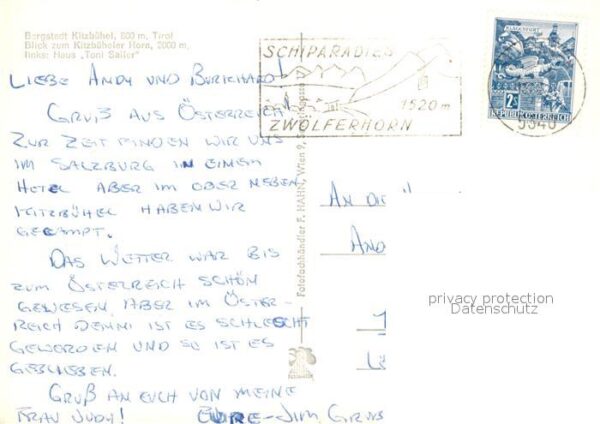 Bergstadt Kitzbühel, 800 m, Tirol
Blick zum Kitzbüheler Horn, 2000 m,
links: Haus „Toni Sailer“
LIEBE ANDY UND BURICHARD!
GRUß AUS ÖSTERREICH!
ZUR ZEIT FINDEN WIR UNS
IM SALZBURG IN EINEM
HOTEL ABER IM OBER NEBEN
KITZBÜHEL HABEN WIR
GECAMPT.
DAS WETTER WAR BIS
ZUM ÖSTERREICH SCHÖN
GEWESEN, ABER IM ÖSTER-
REICH IST ES SCHLECHT
GEWORDEN UND SO IST ES
GEBLIEBEN.
GRUß AN EUCH VON MEINE
FRAU JUDY! EURE-JIM
SCHIPARADIES
1520 m
ZWÖLFERHORN
KLAGENFURT
2S
REPUBLIK ÖSTERREICH
5340
Fotofachhändler F. HAHN, Wien 9,
AN DIE
AND
privacy protection
Datenschutz